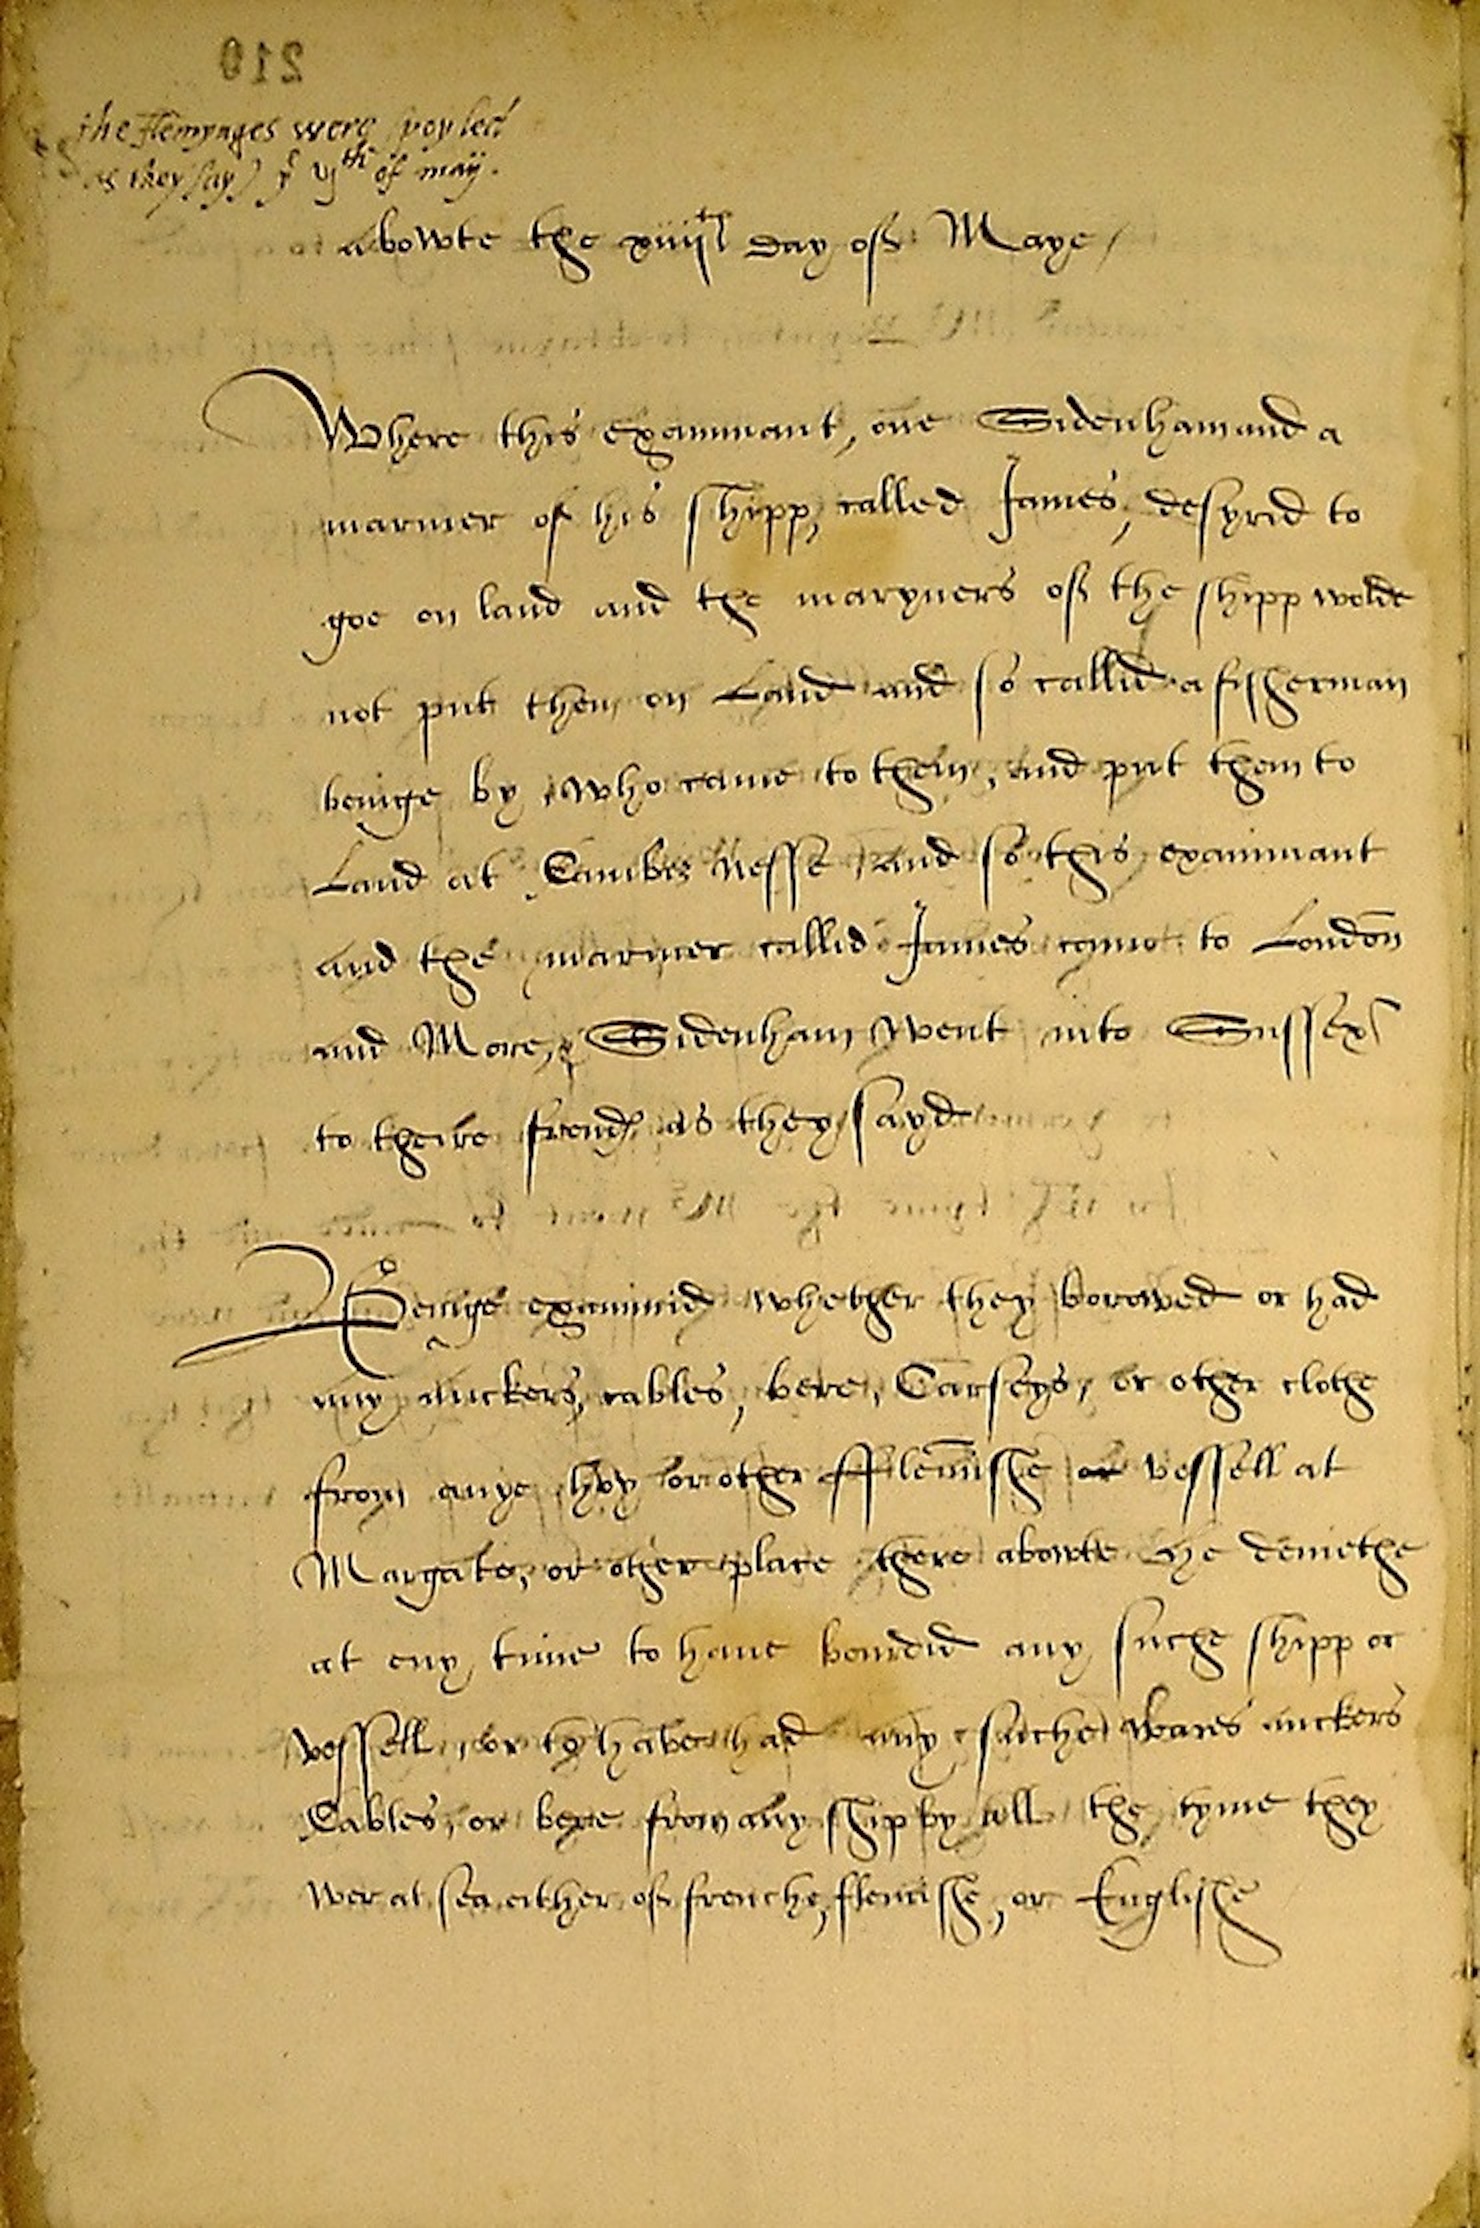 210
the flemynges were spoyled
as they say) yͤ vjth of may.
abowte the xiiijth day off Maye /
Where this examinant, one Sidenham and a
mariner of his shipp, called James, desyrid to
goe on land and the maryners off the shipp wolde
not put them on Land and so callid a fisherman
beinge by who came to them, and put them to
Land at nesse and so this examinant
and the mariner callid James came to London
and More, & Sidenham went into Sussex
to theire frends as they sayd
Beinge examinid whether they borowed or had
any anckers, cables, bere, Carseys, or other clothe
from anye hoy or other fflemishe or vessell at
Margate, or other place there abowte He deniethe
at eny time to haue bourdid any suche shipp or
vessell, or to have had any suche Wares anckers
Cables, or bere from any ship by all the tyme they
wer at sea either off frenche, flemishe, or Englishe